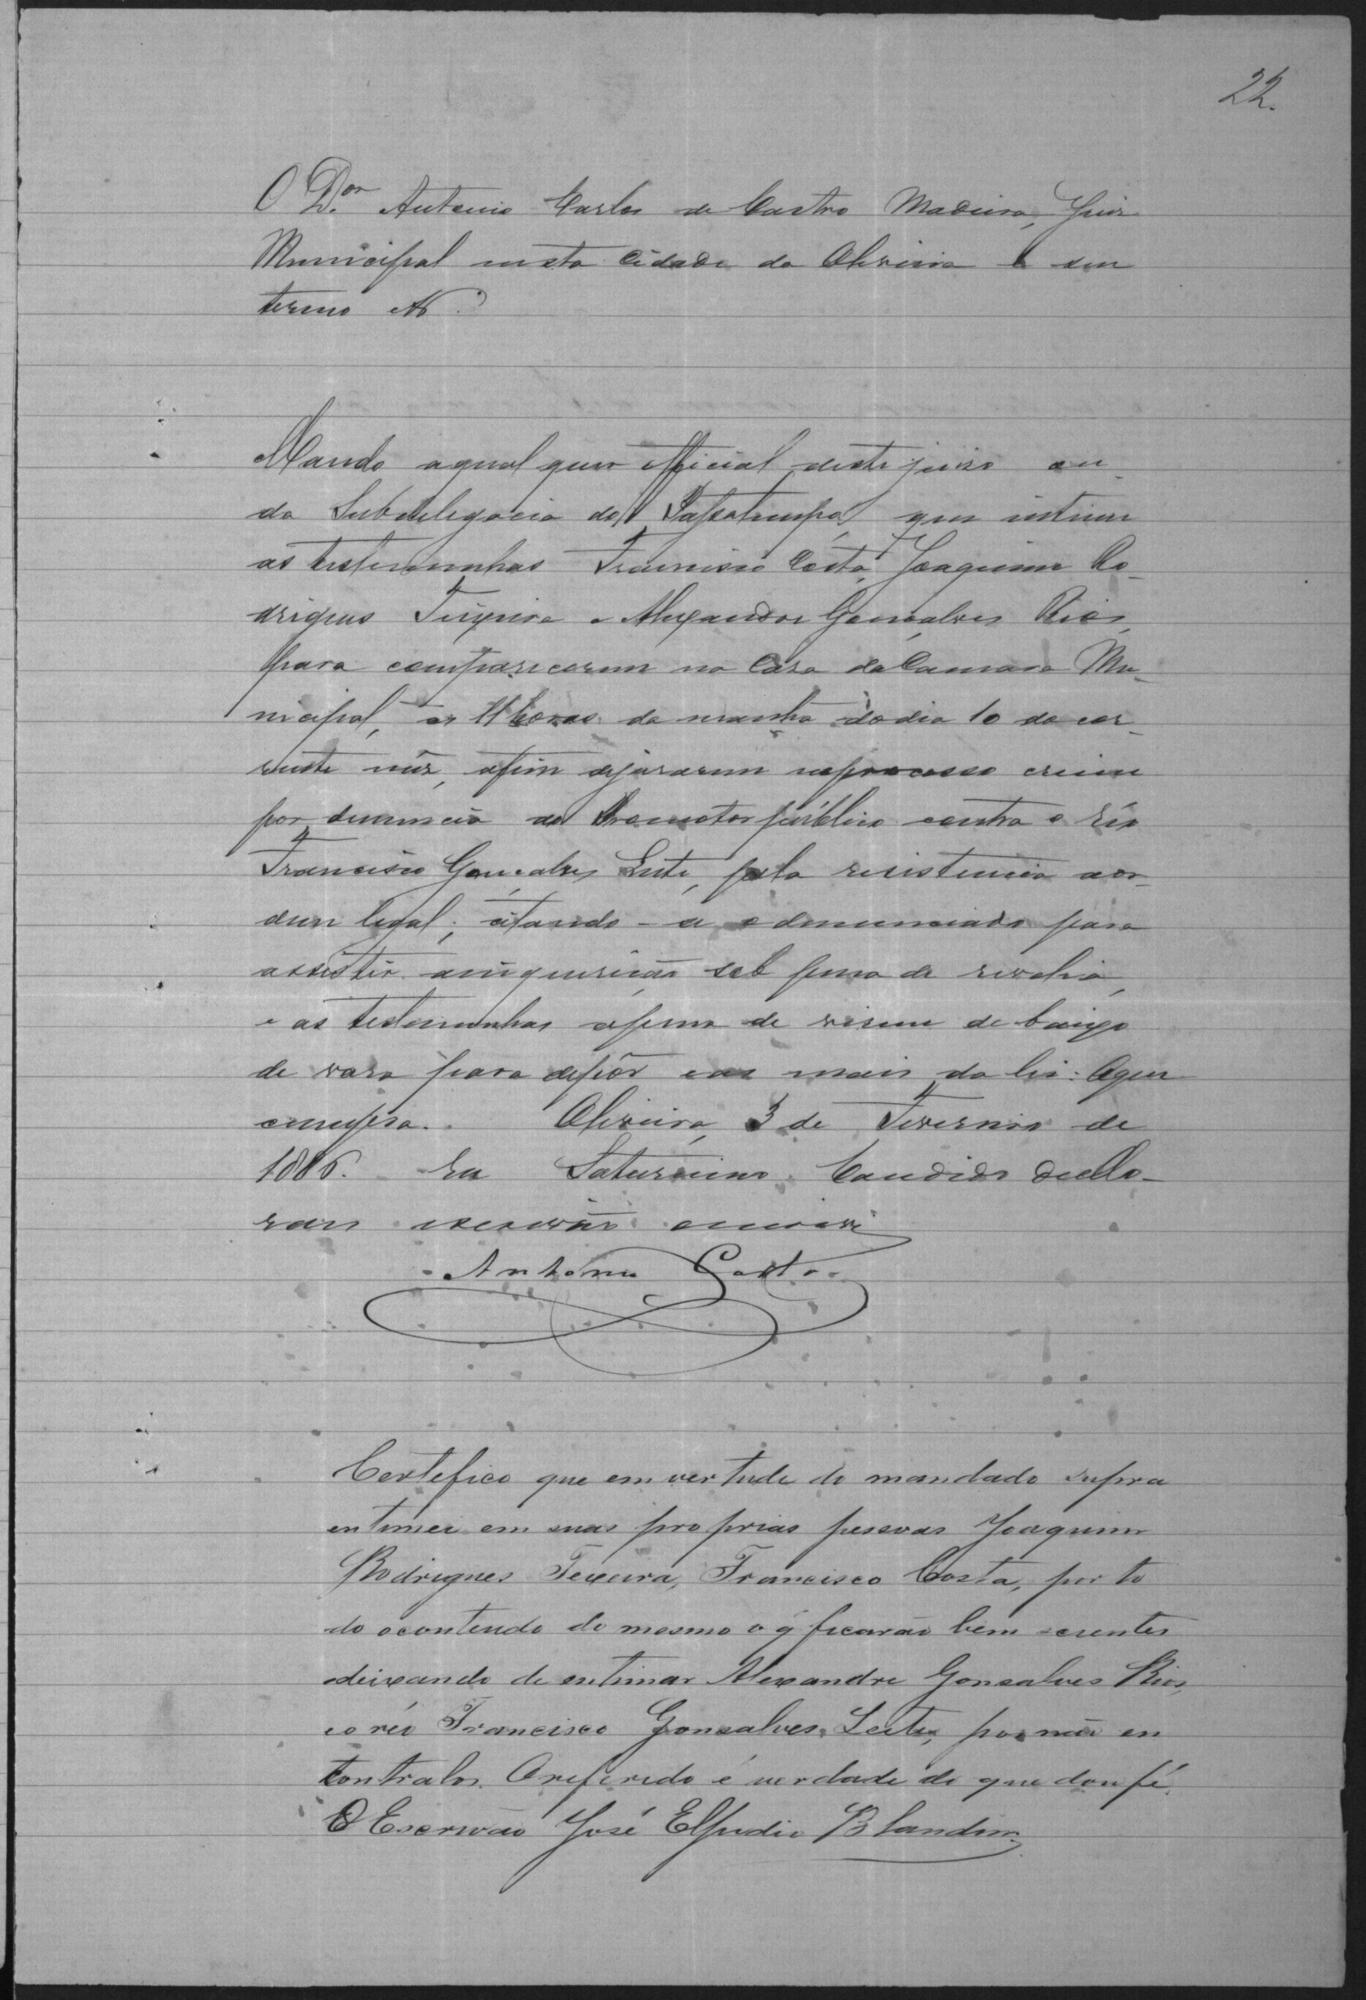 22.
O Dor. Antonio Carlos de Castro Madeira, Juiz
Municipal nesta Cidade da Oliveira e seu
termo &
Mando a qual quer official deste juizo ou
da Subdelegacia do Passatempo, que intime
as testemunhas Francisco Costa, Joaquim Ro-
drigues Teixeira e Alexandre Gonçalves Rios,
para comparecerem na Casa da Camara Mu-
nicipal, as 11 horas da manhã do dia 10 do cor-
rente mez, afim de jurarem no processo crime
por denuncia do Promotor publico contra o réo
Francisco Gonçalves Leite, pela resistencia a or-
dem legal; citando-se o denunciado para
assistir a inquerição sob pena de revelia,
e as testemunhas a pena de virem de baixo
de vara para depôr e as mais da lei. O que
cumpra. Oliveira, 3 de Fevereiro de
1886. Eu Saturnino Candido de
escrivão escrevi
Antonio Castro
Certefico que em vertude do mandado supra
entimei em suas proprias pessoas Joaquim
Rodrigues Texeira, Francisco Costa, por to
do o contendo do mesmo o q̃ ficarão bem scientes
deixando de entimar Alexandre Gonsalves Rios,
e o réo Francisco Gonsalves Leite, por não en
contralos. O referido é verdade do que dou fé.
O Escrivão José Elpidio Blandim